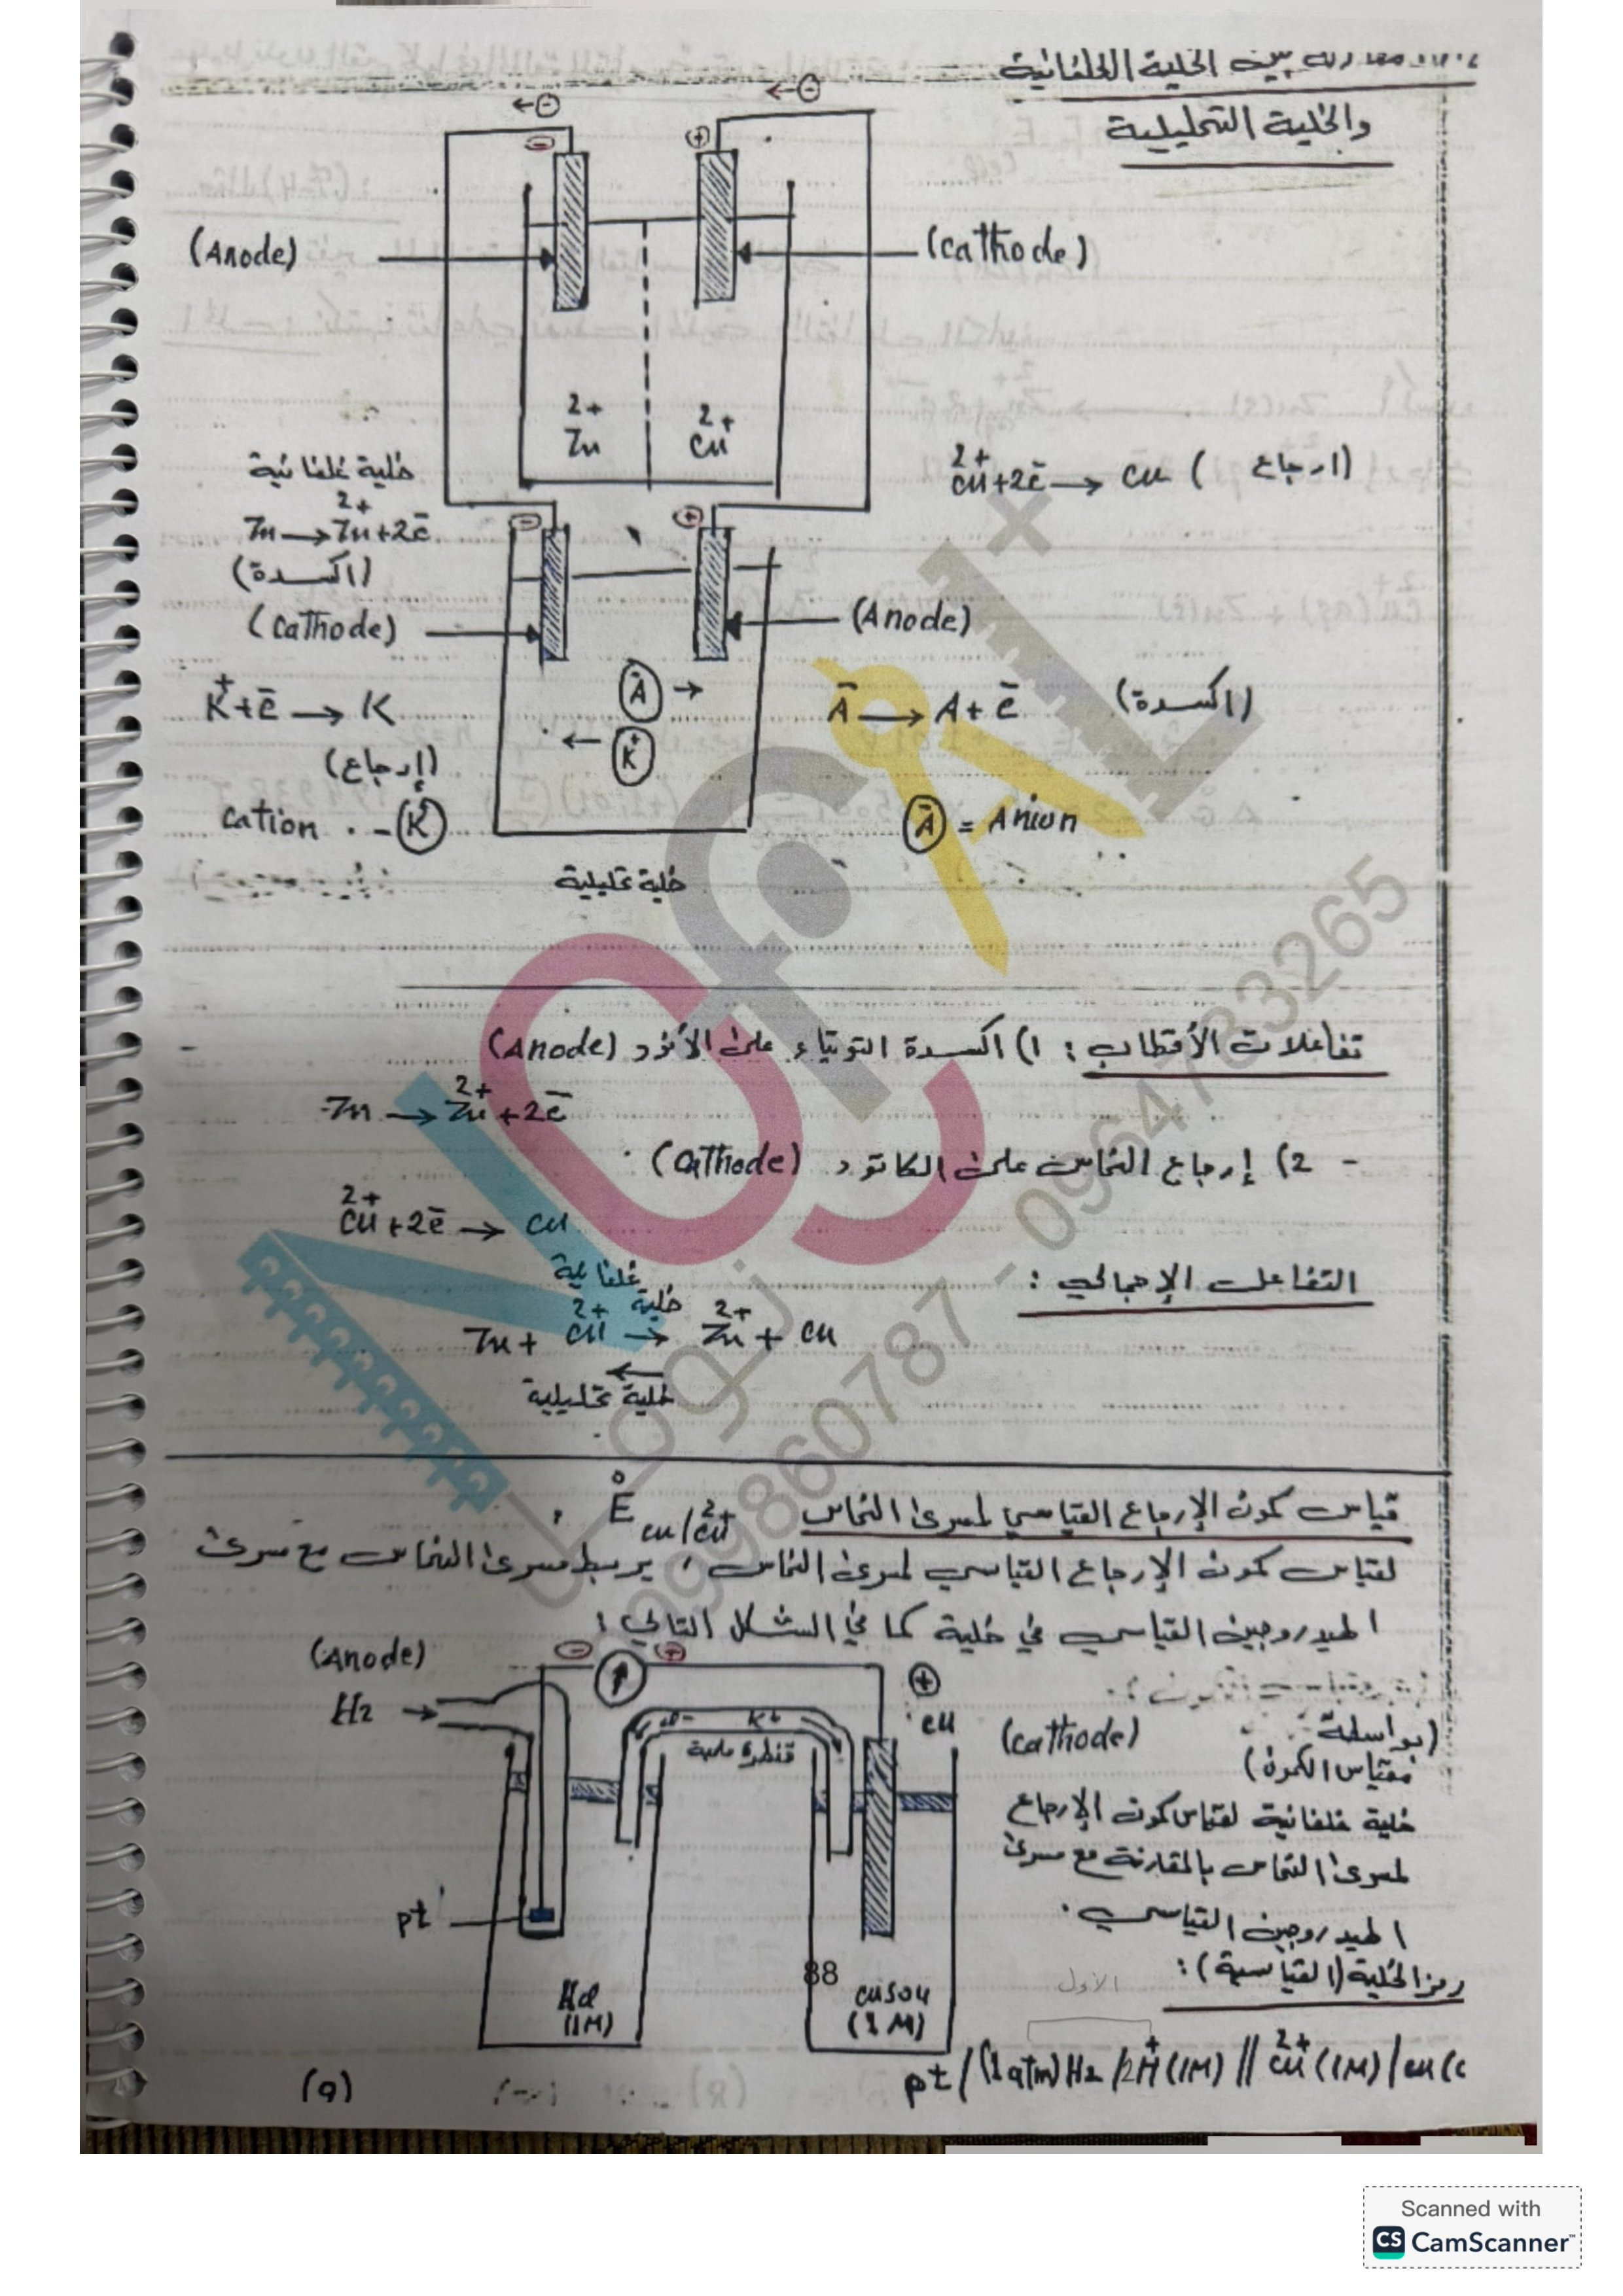 مقارنة بين الخلية الغلفانية
والخلية التحليلية
←⊖ ←⊖
⊖ ⊕
(Anode) (Cathode)
Zn²⁺ Cu²⁺
خلية غلفانية
Zn → Zn²⁺ + 2e⁻
(اكسدة)
Cu²⁺ + 2e⁻ → Cu (ارجاع)
⊖ ⊕
(Cathode) (Anode)
K⁺ + e⁻ → K
(إرجاع)
A⁻ → A + e⁻ (اكسدة)
A⁻ →
← K⁺
cation - K⁺
A⁻ = Anion
خلية تحليلية
تفاعلات الأقطاب : 1) اكسدة التوتياء على الأنود (Anode)
Zn → Zn²⁺ + 2e⁻
- 2) إرجاع النحاس على الكاتود (Cathode)
Cu²⁺ + 2e⁻ → Cu
التفاعل الإجمالي :
خلية غلفانية
Zn + Cu²⁺ → Zn²⁺ + Cu
←
خلية تحليلية
قياس كمون الإرجاع القياسي لمسرى النحاس E° Cu/Cu²⁺ :
لقياس كمون الإرجاع القياسي لمسرى النحاس ، يربط مسرى النحاس مع مسرى
الهيدروجين القياسي في خلية كما في الشكل التالي :
(Anode) ⊖ ⊕ ⊕
H2 → cl- K+ Cu (cathode)
قنطرة ملحية
(بواسطة
مقياس الكمون)
خلية غلفانية لقياس كمون الإرجاع
لمسرى النحاس بالمقارنة مع مسرى
الهيدروجين القياسي .
pt
88
Hcl
(1M)
CuSO4
(1M)
الأول
رمز الخلية (القياسية) :
pt / (1 atm) H2 / 2H⁺ (1M) // Cu²⁺ (1M) / Cu (c
(9)
0998860787 - 0964783265
Scanned with
CS CamScanner™